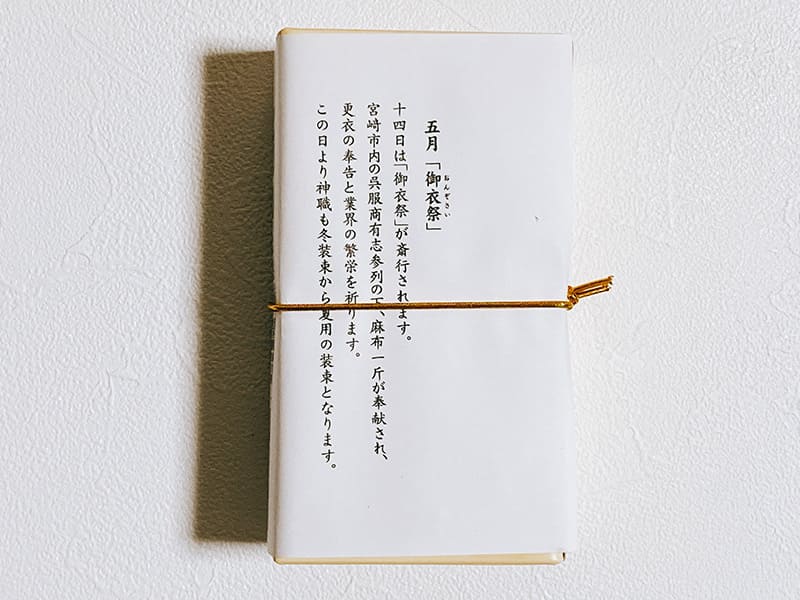 五月「御衣祭」
おんぞさい
十四日は「御衣祭」が斎行されます。
宮崎市内の呉服商有志参列の下、麻布一斤が奉献され、
更衣の奉告と業界の繁栄を祈ります。
この日より神職も冬装束から夏用の装束となります。